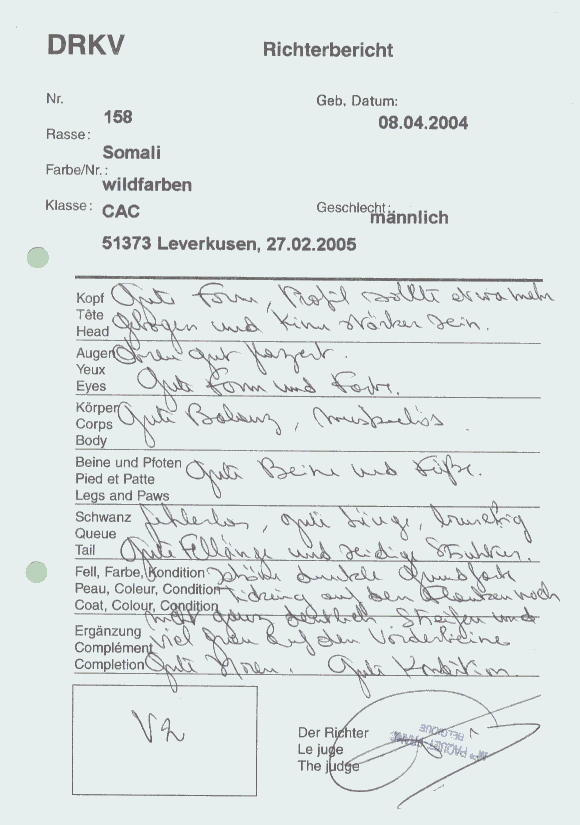 DRKV
Richterbericht
Nr.
158
Geb. Datum:
08.04.2004
Rasse:
Somali
Farbe/Nr.:
wildfarben
Klasse: CAC
Geschlecht: männlich
51373 Leverkusen, 27.02.2005
Kopf Gute Form, Profil sollte etwa mehr
Tête
Head gebogen und Kinn stärker sein.
Augen Ohren gut
Yeux
Eyes Gute Form und Farbe.
Körper Gute Balanz,
Corps
Body
Beine und Pfoten Gute Beine und Füße.
Pied et Patte
Legs and Paws
Schwanz fehlerlos, gute Länge, buschig
Queue
Tail Gute Fellänge und seidige
Fell, Farbe, Kondition schöne dunkle
Peau, Couleur, Condition Ticking auf den noch
Coat, Colour, Condition nicht ganz deutlich Streifen und
Ergänzung
Complément viel grau auf den Vorderbeine
Completion Gute Gute Kondition.
V2
Der Richter
Le juge
The judge
PAQUET
BELGIQUE